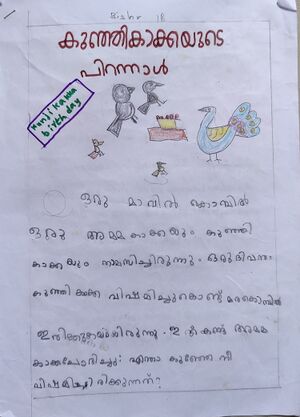 കുഞ്ഞികാക്കയുടെ
പിറന്നാൾ
Kunji kakka
birthday
ഒരു മാവിൻ കൊമ്പിൽ
ഒരു അമ്മ കാക്കയും കുഞ്ഞി
കാക്കയും താമസിച്ചിരുന്നു. ഒരു ദിവസം
കുഞ്ഞി കാക്ക വിഷമിച്ചുകൊണ്ട് മരക്കൊമ്പിൽ
ഇരിക്കുകയായിരുന്നു. ഇത് കണ്ട അമ്മ
കാക്ക ചോദിച്ചു: എന്താ കുഞ്ഞേ നീ
വിഷമിച്ചിരിക്കുന്നത്?